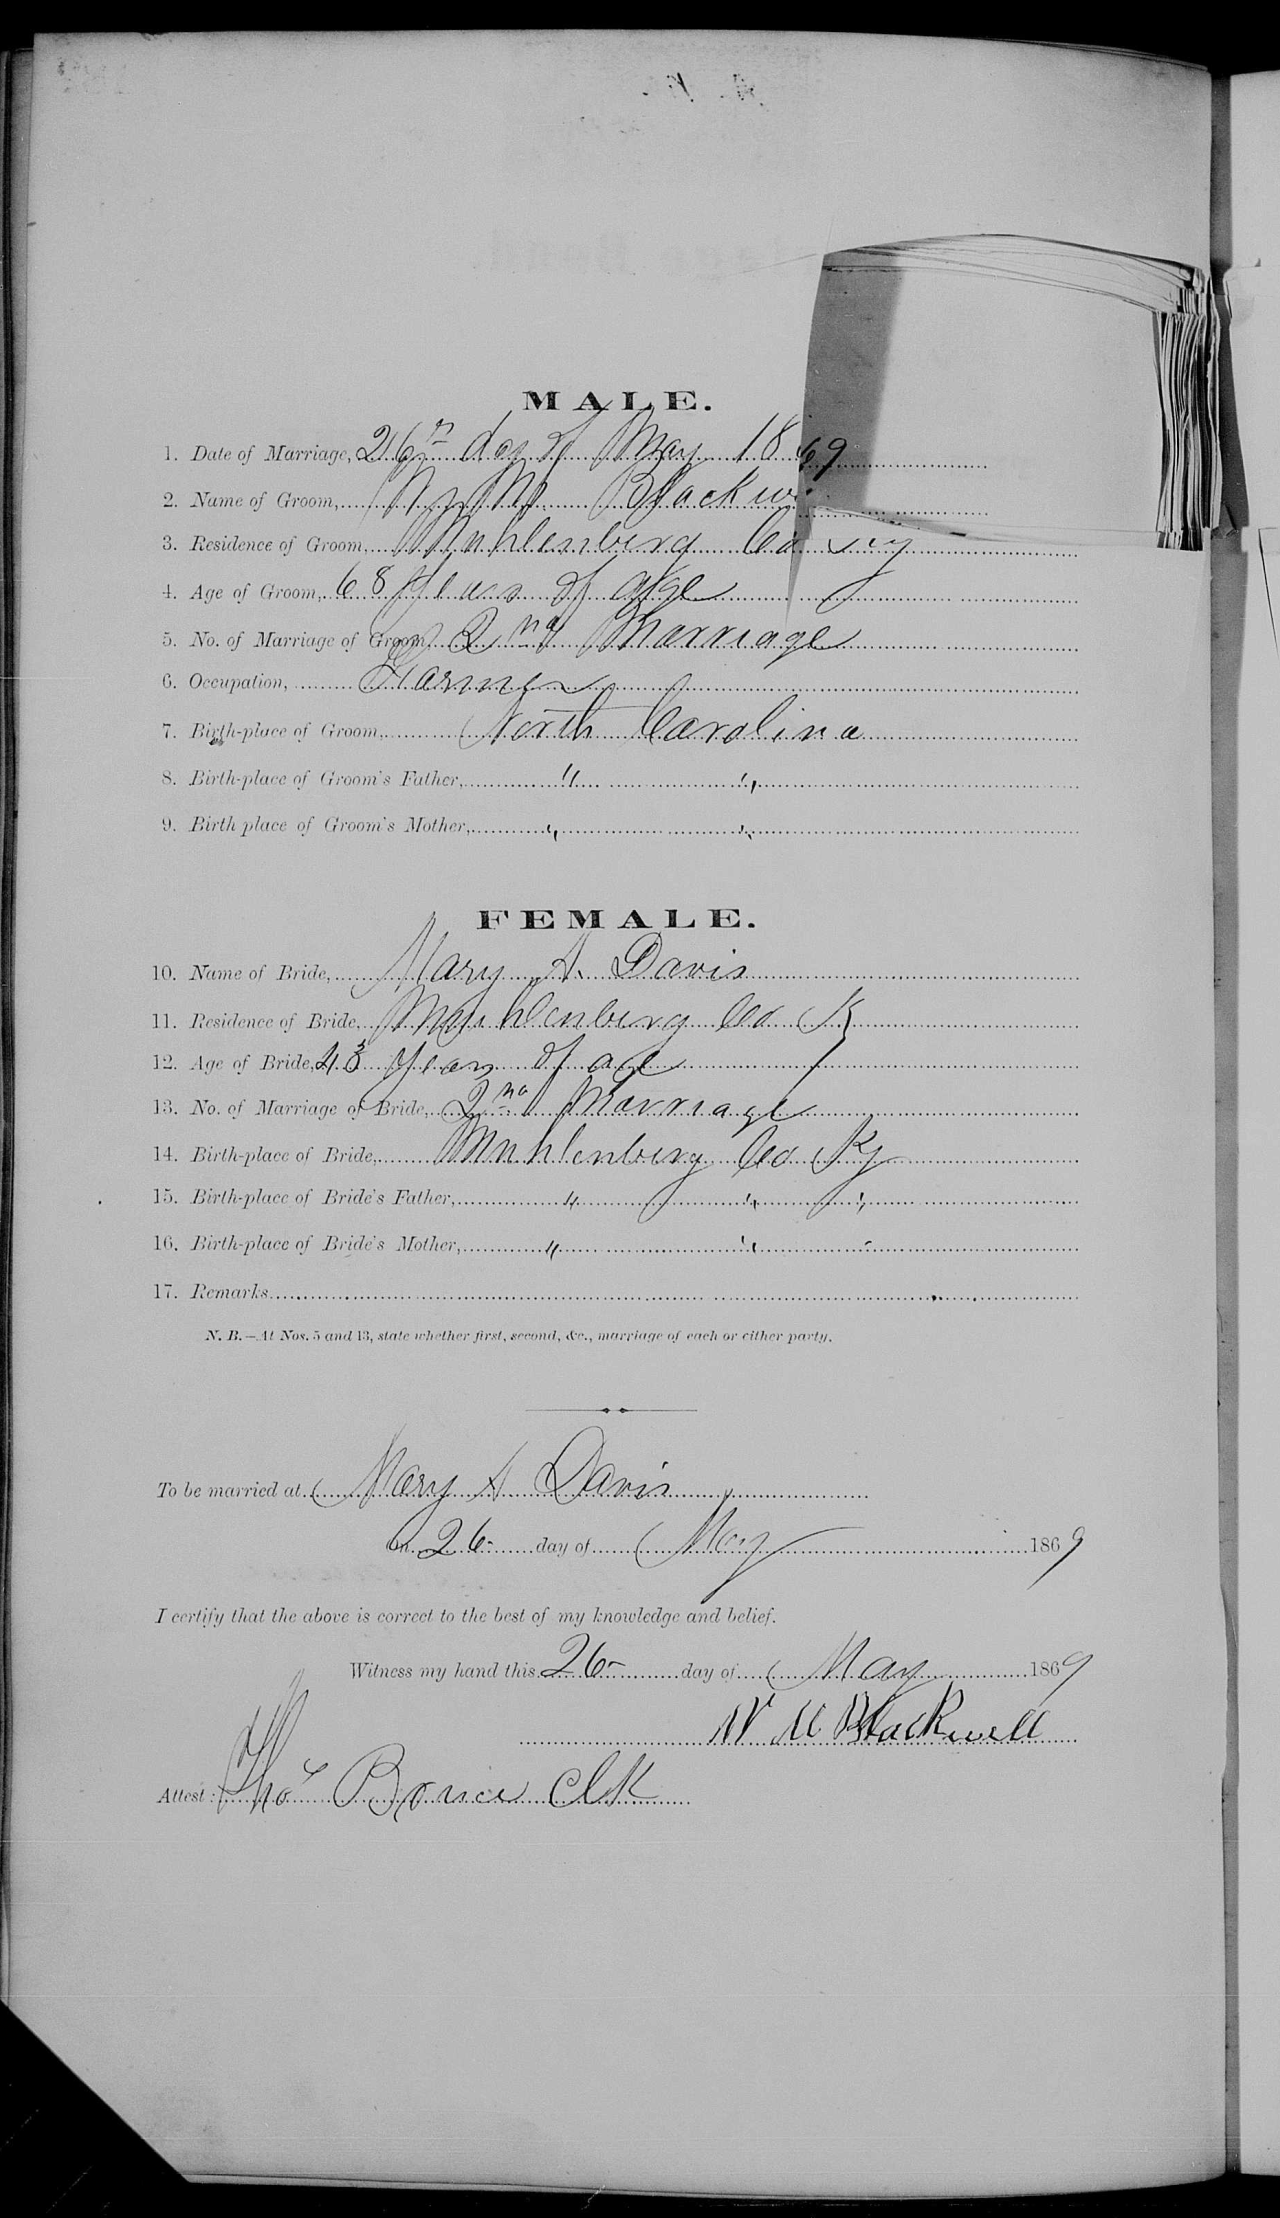 MALE.
1. Date of Marriage, 26th day of May 1869
2. Name of Groom, Blackw
3. Residence of Groom, Muhlenberg Co
4. Age of Groom, 68 years of age
5. No. of Marriage of Groom, 2nd Marriage
6. Occupation, Farmer
7. Birth-place of Groom, North Carolina
8. Birth-place of Groom's Father, " "
9. Birth place of Groom's Mother, " "
FEMALE.
10. Name of Bride, Mary A. Davis
11. Residence of Bride, Muhlenberg Co Ky
12. Age of Bride, years of age
13. No. of Marriage of Bride, 2nd Marriage
14. Birth-place of Bride, Muhlenberg Co Ky
15. Birth-place of Bride's Father, " " "
16. Birth-place of Bride's Mother, " " "
17. Remarks
N. B.—At Nos. 5 and 13, state whether first, second, &c., marriage of each or either party.
To be married at Mary A Davis
on 26 day of May 1869
I certify that the above is correct to the best of my knowledge and belief.
Witness my hand this 26 day of May 1869
Blackwell
Attest: Thos Bruce Clk